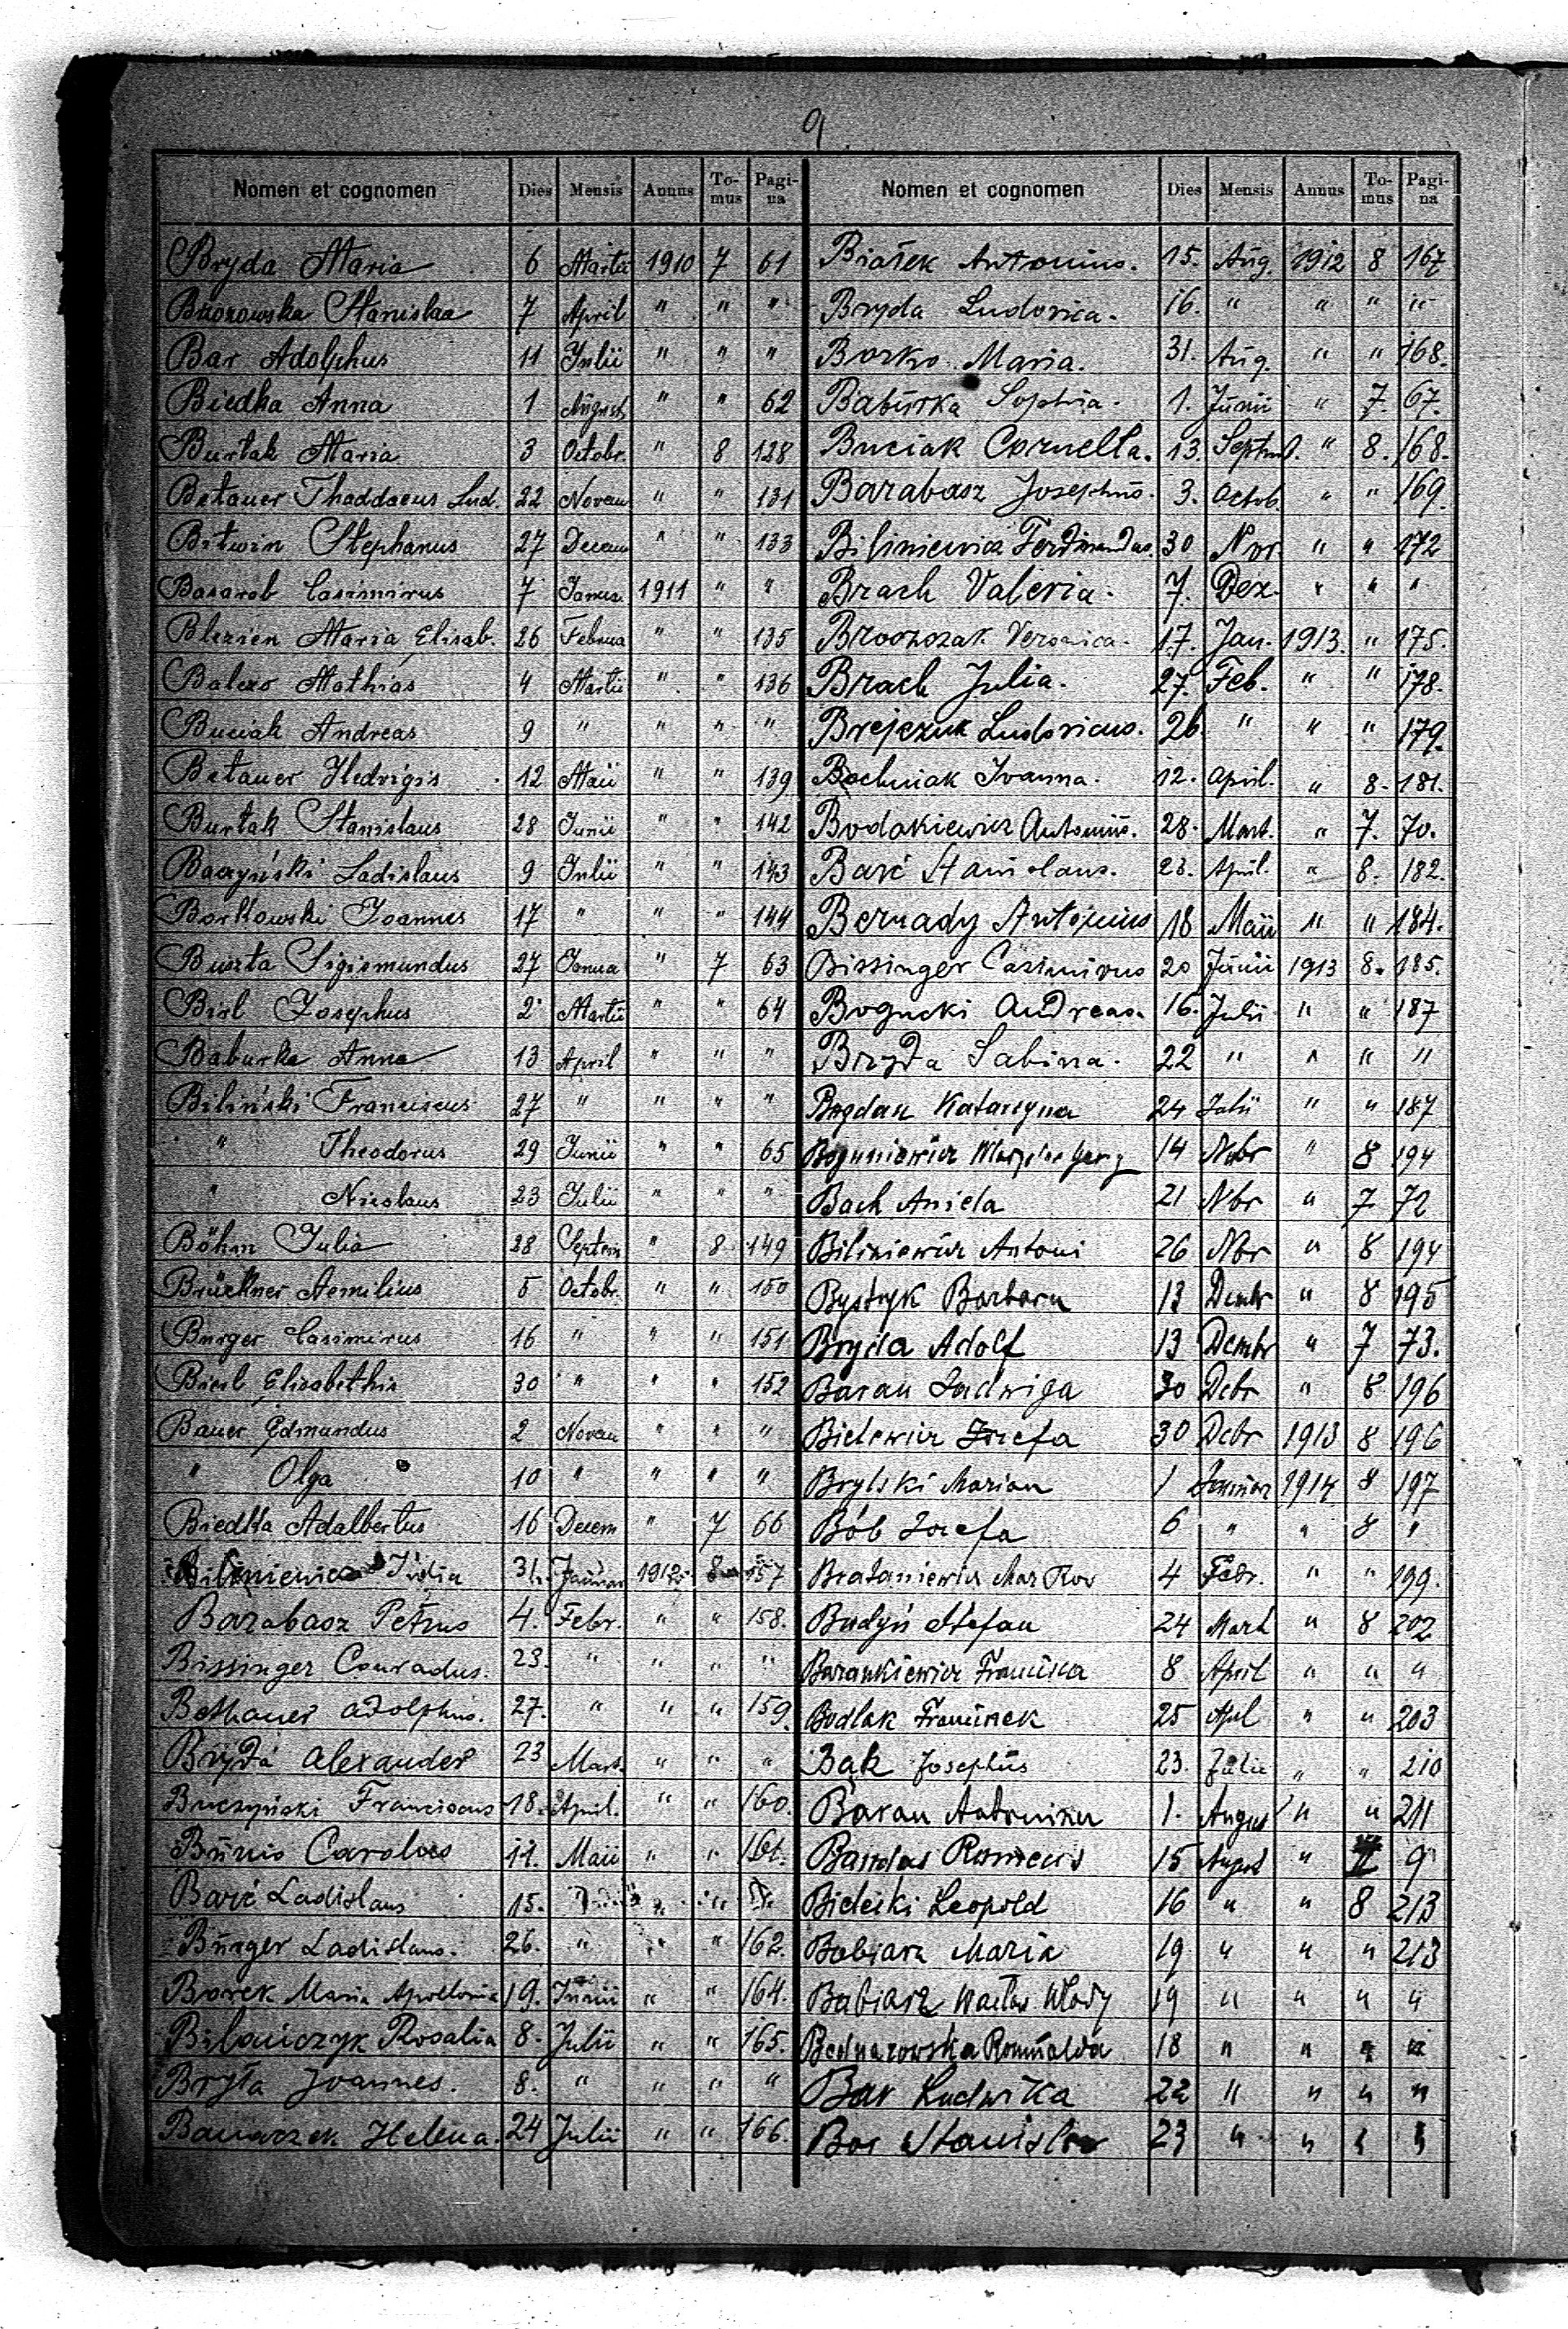 9
Nomen et cognomen Dies Mensis Annus To-mus Pagi-na
Bryda Maria 6 Martii 1910 7 61
Brzozowska Stanislaa 7 April " " "
Bar Adolphus 11 Julii " " "
Biedka Anna 1 August " " 62
Burtak Maria 3 Octobr. " 8 128
Betauer Thaddaeus Lud. 22 Novem " " 131
Bitwin Stephanus 27 Decem " " 133
Basarab Casimirus 7 Janua. 1911 " "
Blezien Maria Elisab. 26 Februa " " 135
Balezo Mathias 4 Martii " " 136
Buciak Andreas 9 " " " "
Betauer Hedvigis 12 Maii " " 139
Burtak Stanislaus 28 Junii " " 142
Baczyński Ladislaus 9 Julii " " 143
Borkowski Joannes 17 " " " 144
Buszta Sigismundus 27 Janua " 7 63
Birl Josephus 2 Martii " " 64
Baburka Anna 13 April " " "
Biliński Franciscus 27 " " " "
" Theodorus 29 Junii " " 65
" Nicolaus 23 Julii " " "
Böhm Julia 28 Septem " 8 149
Brückner Aemilius 5 Octobr. " " 150
Burger Casimirus 16 " " " 151
Bierl Elisabethis 30 " " " 152
Bauer Edmundus 2 Novem " " "
" Olga 10 " " " "
Biedka Adalbertus 16 Decem " 7 66
Biliniewicz Julia 31. Januar 1912 8 157
Barabasz Petrus 4. Febr. " " 158.
Bissinger Conradus. 23. " " " "
Bethauer Adolphus. 27. " " " 159.
Bryda Alexander 23 Mart. " " "
Buczyński Franciscus 18. April. " " 160.
Bunio Carolus 11. Maii " " 161.
Barć Ladislaus 15. " "
Burger Ladislaus. 26. " " " 162.
Borek Maria Apollonia 19. Junii " " 164.
Bilaniczyk Rosalia 8. Julii " " 165.
Bryła Joannes. 8. " " " "
Banaczek Helena. 24 Julii " " 166.
Nomen et cognomen Dies Mensis Annus To-mus Pagi-na
Białek Antonius. 15. Aug. 1912 8 167
Bryda Ludovica. 16. " " " "
Borko Maria. 31. Aug. " " 168.
Baburka Sophia. 1. Junii " 7. 67.
Buciak Cornelia. 13. Septemb. " 8. 168.
Barabasz Josephus. 3. Octob. " " 169.
Biliniewicz Ferdinandus. 30 Nov. " " 172
Brach Valeria. 7. Dez. " " "
Veronica. 17. Jan. 1913. " 175.
Brach Julia. 27. Feb. " " 178.
Brejczuk Ludovicus. 26 " " " 179.
Bochniak Ioanna. 12. April. " 8. 181.
Bodakiewicz Antonius. 28. Mart. " 7. 70.
Barć Stanislaus. 23. April. " 8. 182.
Bernady Antonius 18 Maii " " 184.
Bissinger Casimirus 20 Junii 1913 8. 185.
Bogucki Andreas. 16. Julii " " 187
Bryda Sabina. 22 " " " "
Bogdan Katarzyna 24 Julii " " 187
14 Nvbr " 8 194
Bach Aniela 21 Nbr " 7 72
Biliniewicz Antoni 26 Nbr " 8 194
Bystryk Barbara 13 Dembr " 8 195
Bryda Adolf 13 Dembr " 7 73.
Baran Jadwiga 30 Dcbr " 8 196
Bielewicz Józefa 30 Dcbr 1913 8 196
Brylski Marian 1 Januar 1914 8 197
Bób Józefa 6 " " 8 "
Brataniewicz Mar Rov 4 Febr. " " 199.
Budyń Stefan 24 Mart " 8 202
Barankiewicz Franciszka 8 April " " "
Bodlak Franciszek 25 Apl " " 203
Bąk Josephus 23. Julii " " 210
Baran Antonina 1. August " " 211
Bandas Romeus 15 August " II 9
Bielecki Leopold 16 " " 8 213
Babiarz Maria 19 " " " 213
Babiarz Wacław Włady 19 " " " "
Bednarowska Romualda 18 " " " "
Bar Ludwika 22 " " " "
Bos Stanisław 23 " " " "